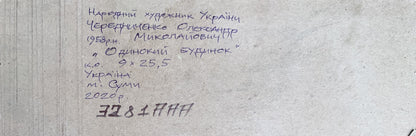 Народний художник України
Чередниченко Олександр
1958р.н. Миколайович
"Одинокий будинок"
к.о. 9 x 25,5
Україна
м. Суми
2020р.
3281ААА